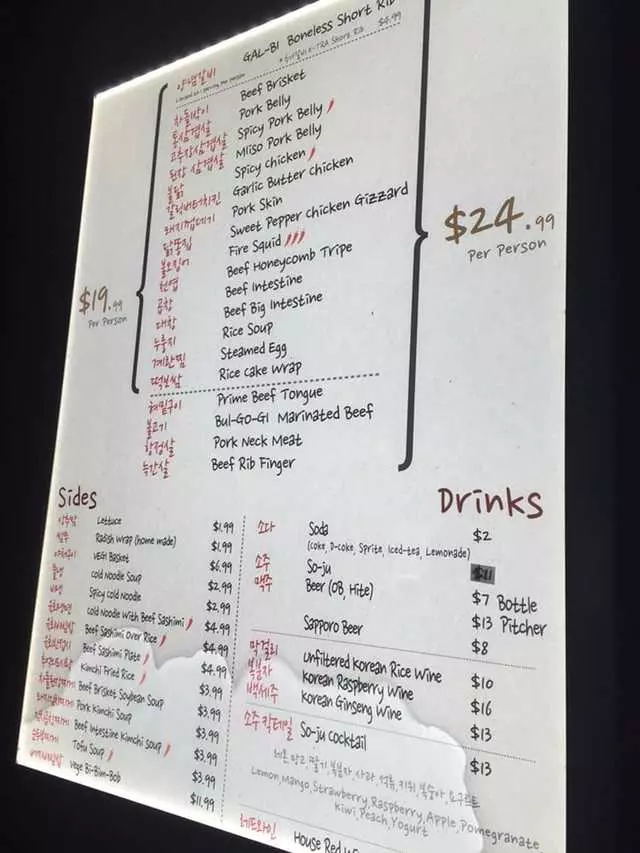 양념갈비 GAL-BI Boneless Short Rib
$4.99
차돌박이 Beef Brisket
통삼겹살 Pork Belly
고추장삼겹살 Spicy Pork Belly
된장 삼겹살 Miiso Pork Belly
불닭 Spicy chicken
갈릭버터치킨 Garlic Butter chicken
돼지껍데기 Pork Skin
닭똥집 Sweet Pepper chicken Gizzard
불오징어 Fire Squid
천엽 Beef Honeycomb Tripe
곱창 Beef Intestine
대창 Beef Big Intestine
누룽지 Rice Soup
계란찜 Steamed Egg
떡보쌈 Rice cake Wrap
$19.99
Per Person
혀밑구이 Prime Beef Tongue
불고기 Bul-GO-GI Marinated Beef
항정살 Pork Neck Meat
늑간살 Beef Rib Finger
$24.99
Per Person
Sides
Lettuce $1.99
Radish Wrap (home made) $1.99
VEGI Basket $6.99
물냉 cold Noodle Soup $2.99
비냉 Spicy cold Noodle $2.99
cold Noodle With Beef Sashimi $4.99
Beef Sashimi Over Rice $4.99
Beef Sashimi Plate $4.99
Kimchi Fried Rice $3.99
Beef Brisket Soybean Soup $3.99
Pork Kimchi Soup $3.99
Beef Intestine Kimchi soup $3.99
Tofu Soup $3.99
Vege Bi-Bim-Bob $11.99
Drinks
소다 Soda $2
(coke, D-coke, Sprite, Iced-tea, Lemonade)
소주 So-ju $11
맥주 Beer (OB, Hite) $7 Bottle
$13 Pitcher
Sapporo Beer $8
막걸리 Unfiltered Korean Rice Wine $10
복분자 Korean Raspberry Wine $16
백세주 Korean Ginseng Wine $13
소주 칵테일 So-ju cocktail $13
레몬, 망고, 딸기, 복분자, 사과, 석류, 키위, 복숭아, 요구르트
Lemon, Mango, Strawberry, Raspberry, Apple, Pomegranate
Kiwi, Peach, Yogurt
레드와인 House Red